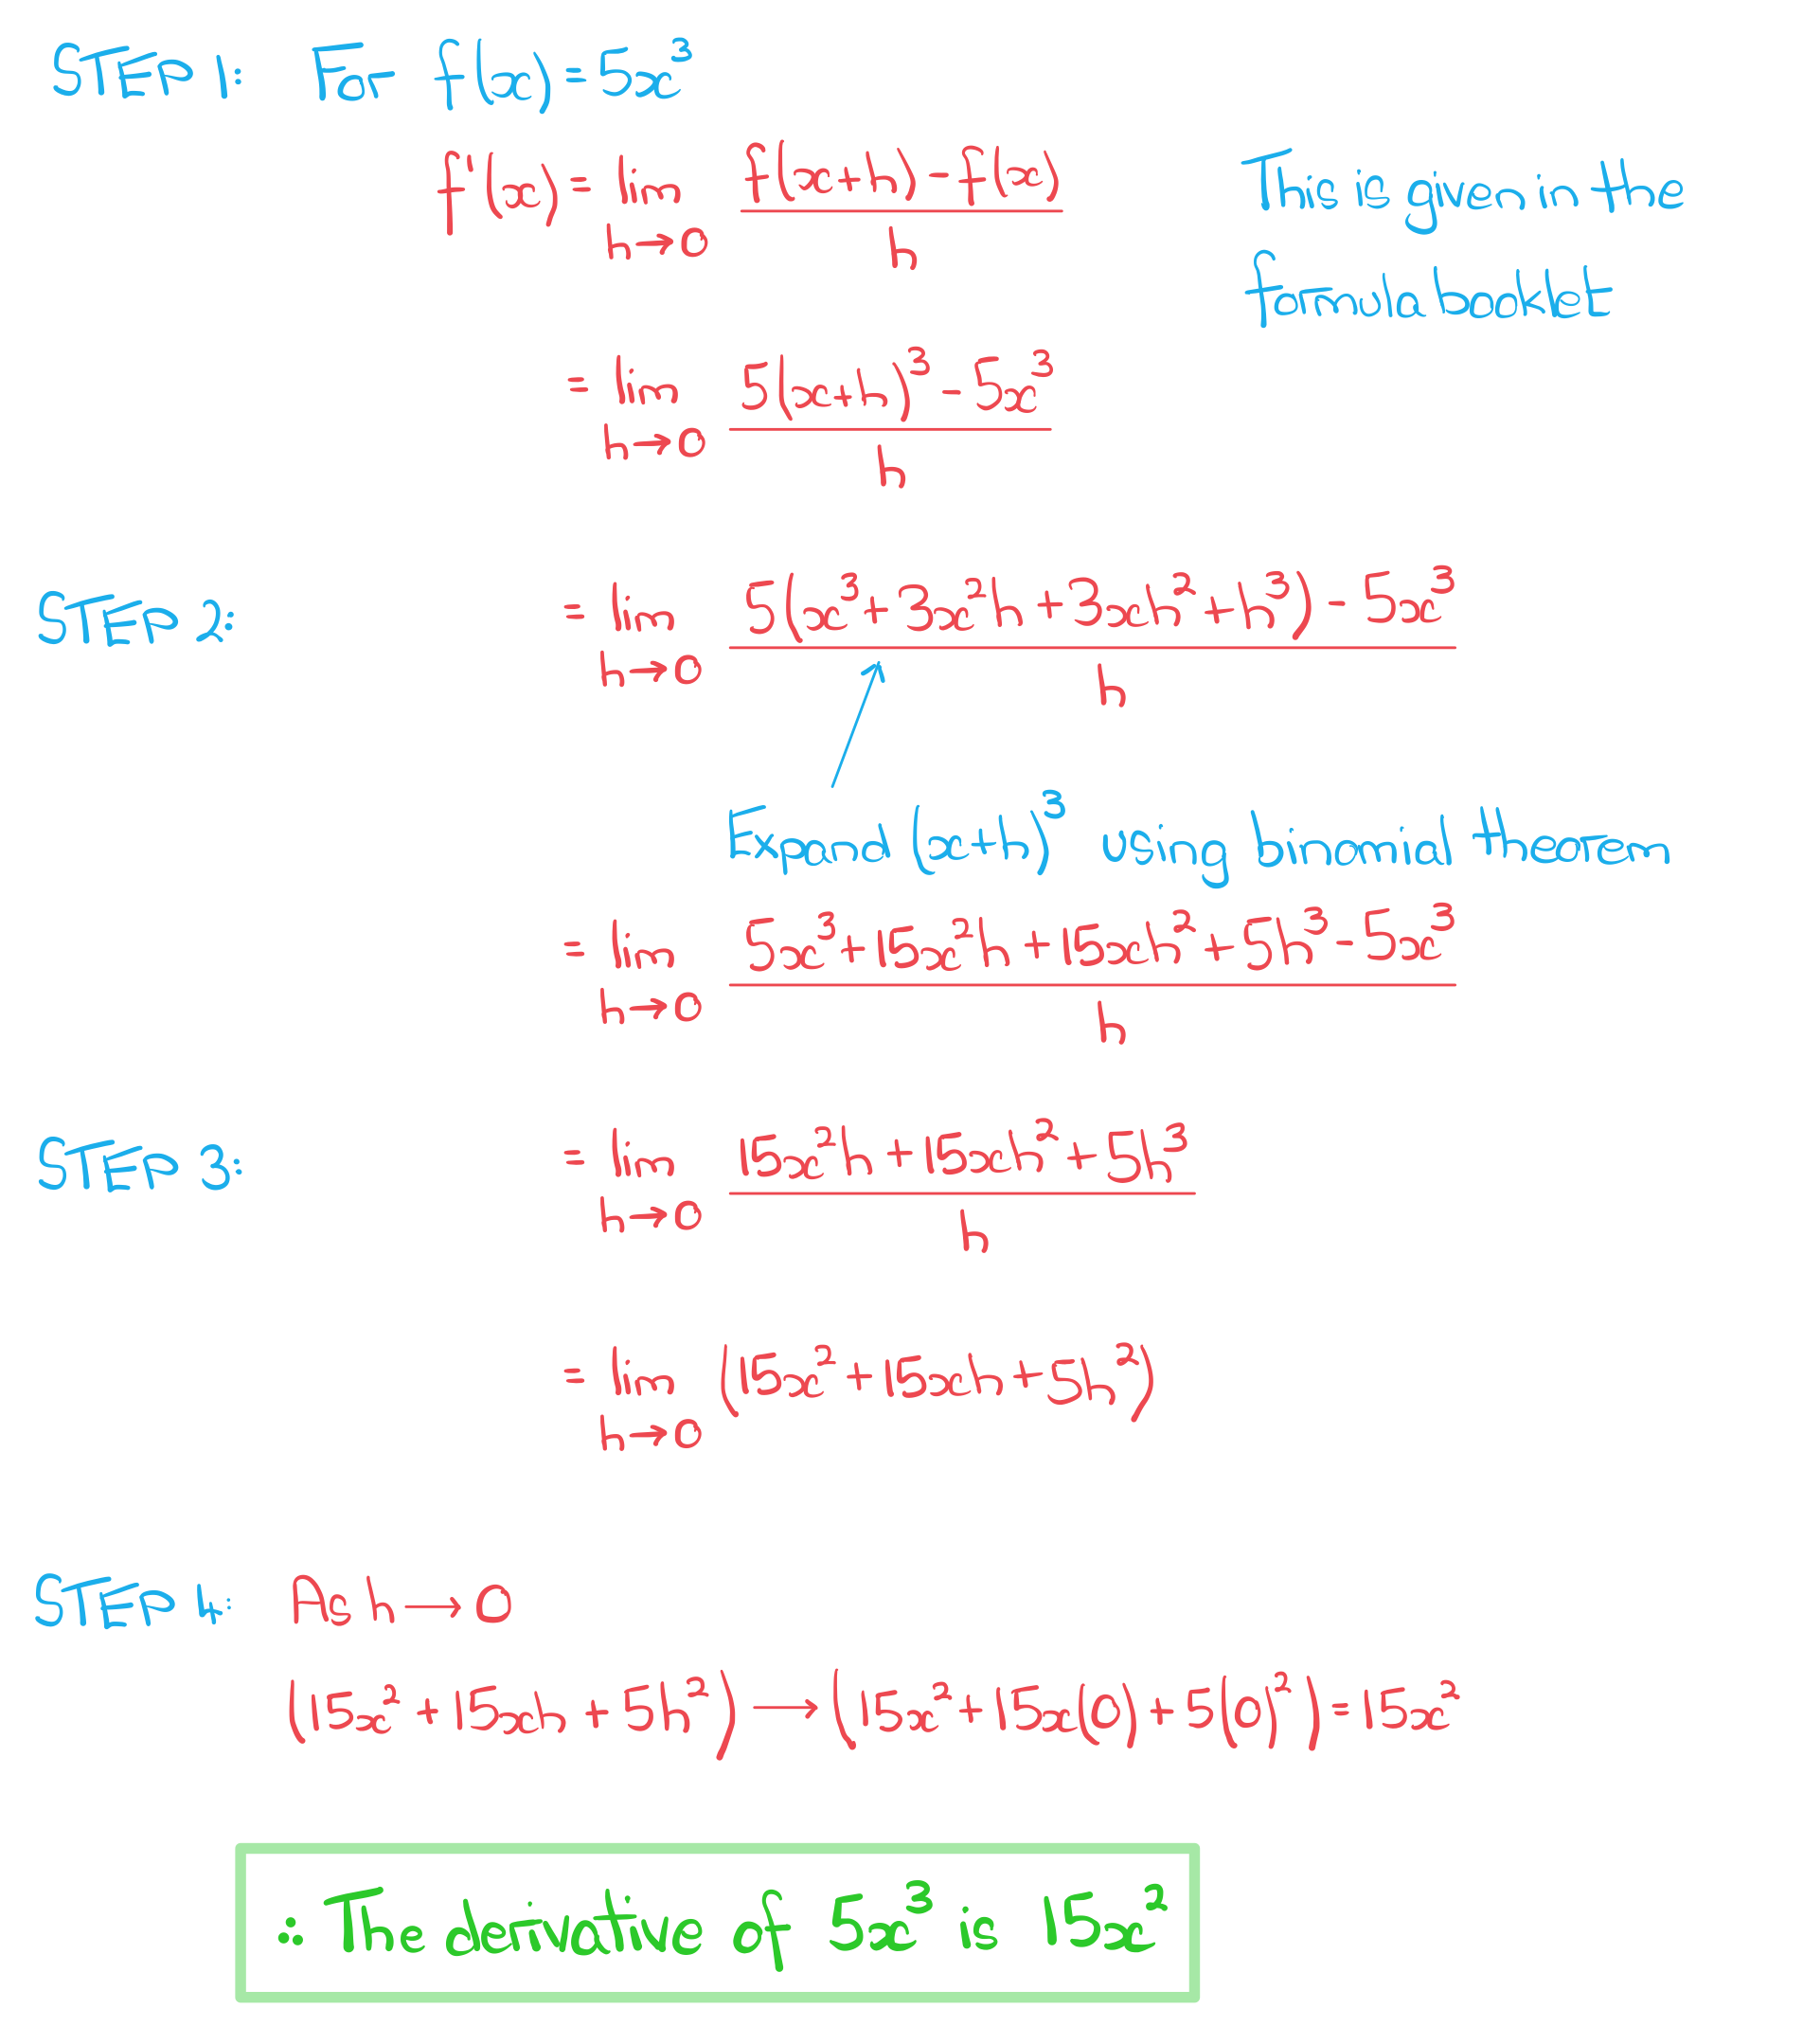 STEP 1: For f(x)=5x³
f'(x) = lim h→0 (f(x+h) - f(x))/h This is given in the
formula booklet
= lim h→0 (5(x+h)³ - 5x³)/h
STEP 2: = lim h→0 (5(x³+3x²h+3xh²+h³) - 5x³)/h
Expand (x+h)³ using binomial theorem
= lim h→0 (5x³+15x²h+15xh²+5h³-5x³)/h
STEP 3: = lim h→0 (15x²h+15xh²+5h³)/h
= lim h→0 (15x²+15xh+5h²)
STEP 4: As h→0
(15x²+15xh+5h²) → (15x²+15x(0)+5(0)²) = 15x²
∴ The derivative of 5x³ is 15x²